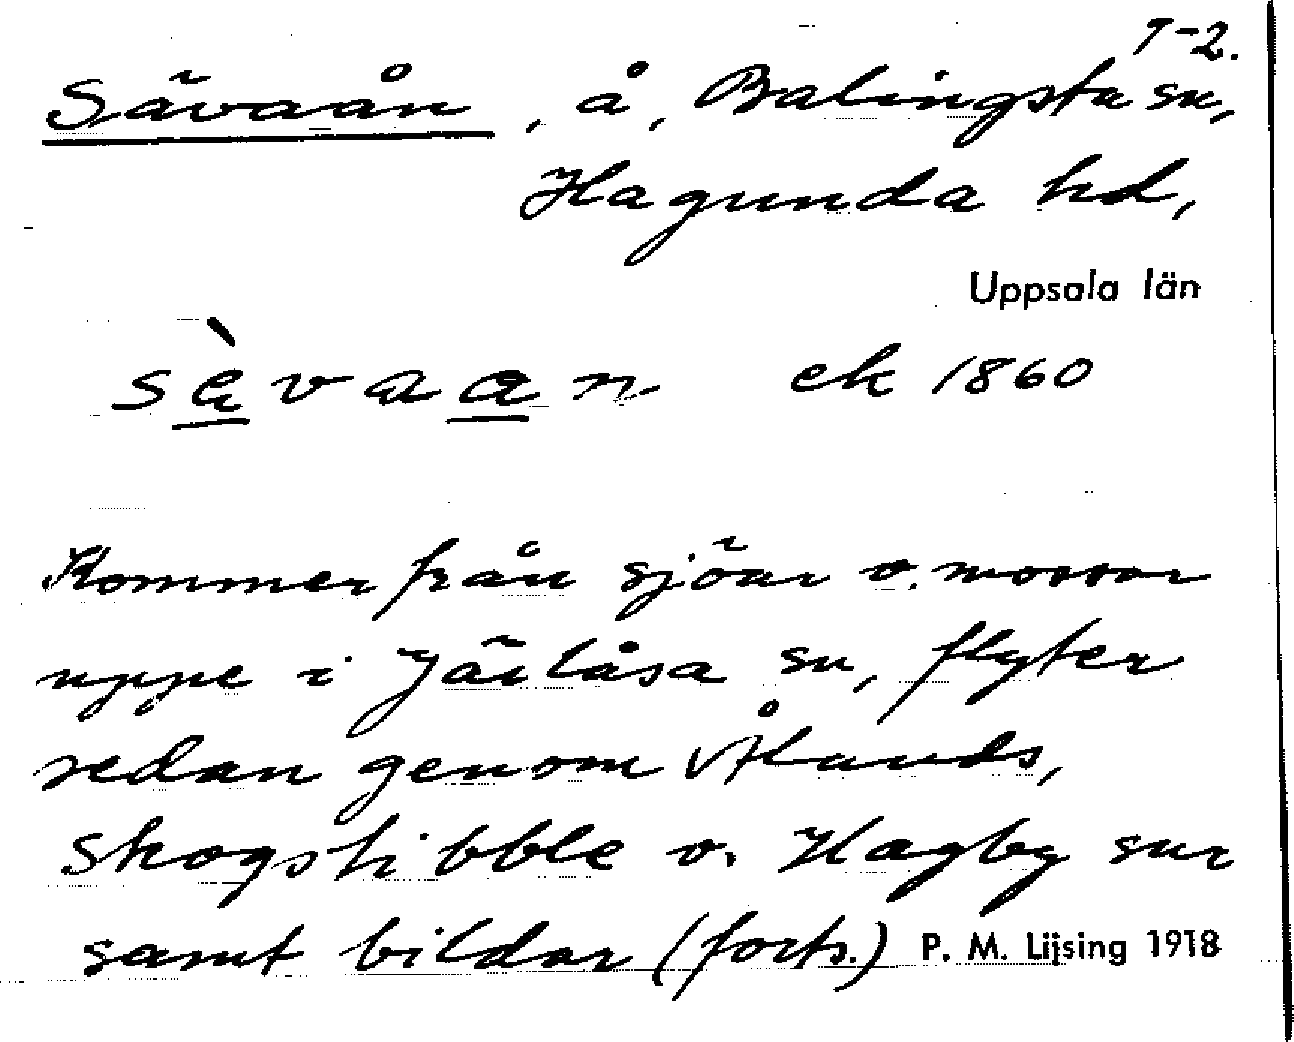 T-2.
Sävaån, å, Balingsta sn,
Hagunda hd,
Uppsala län
sè̱vaa̱n ek 1860
Kommer från sjöar o. mossar
uppe i Järlåsa sn, flyter
sedan genom Ålands,
Skogstibble o. Hagby snr
samt bildar (forts.) P. M. Lijsing 1918